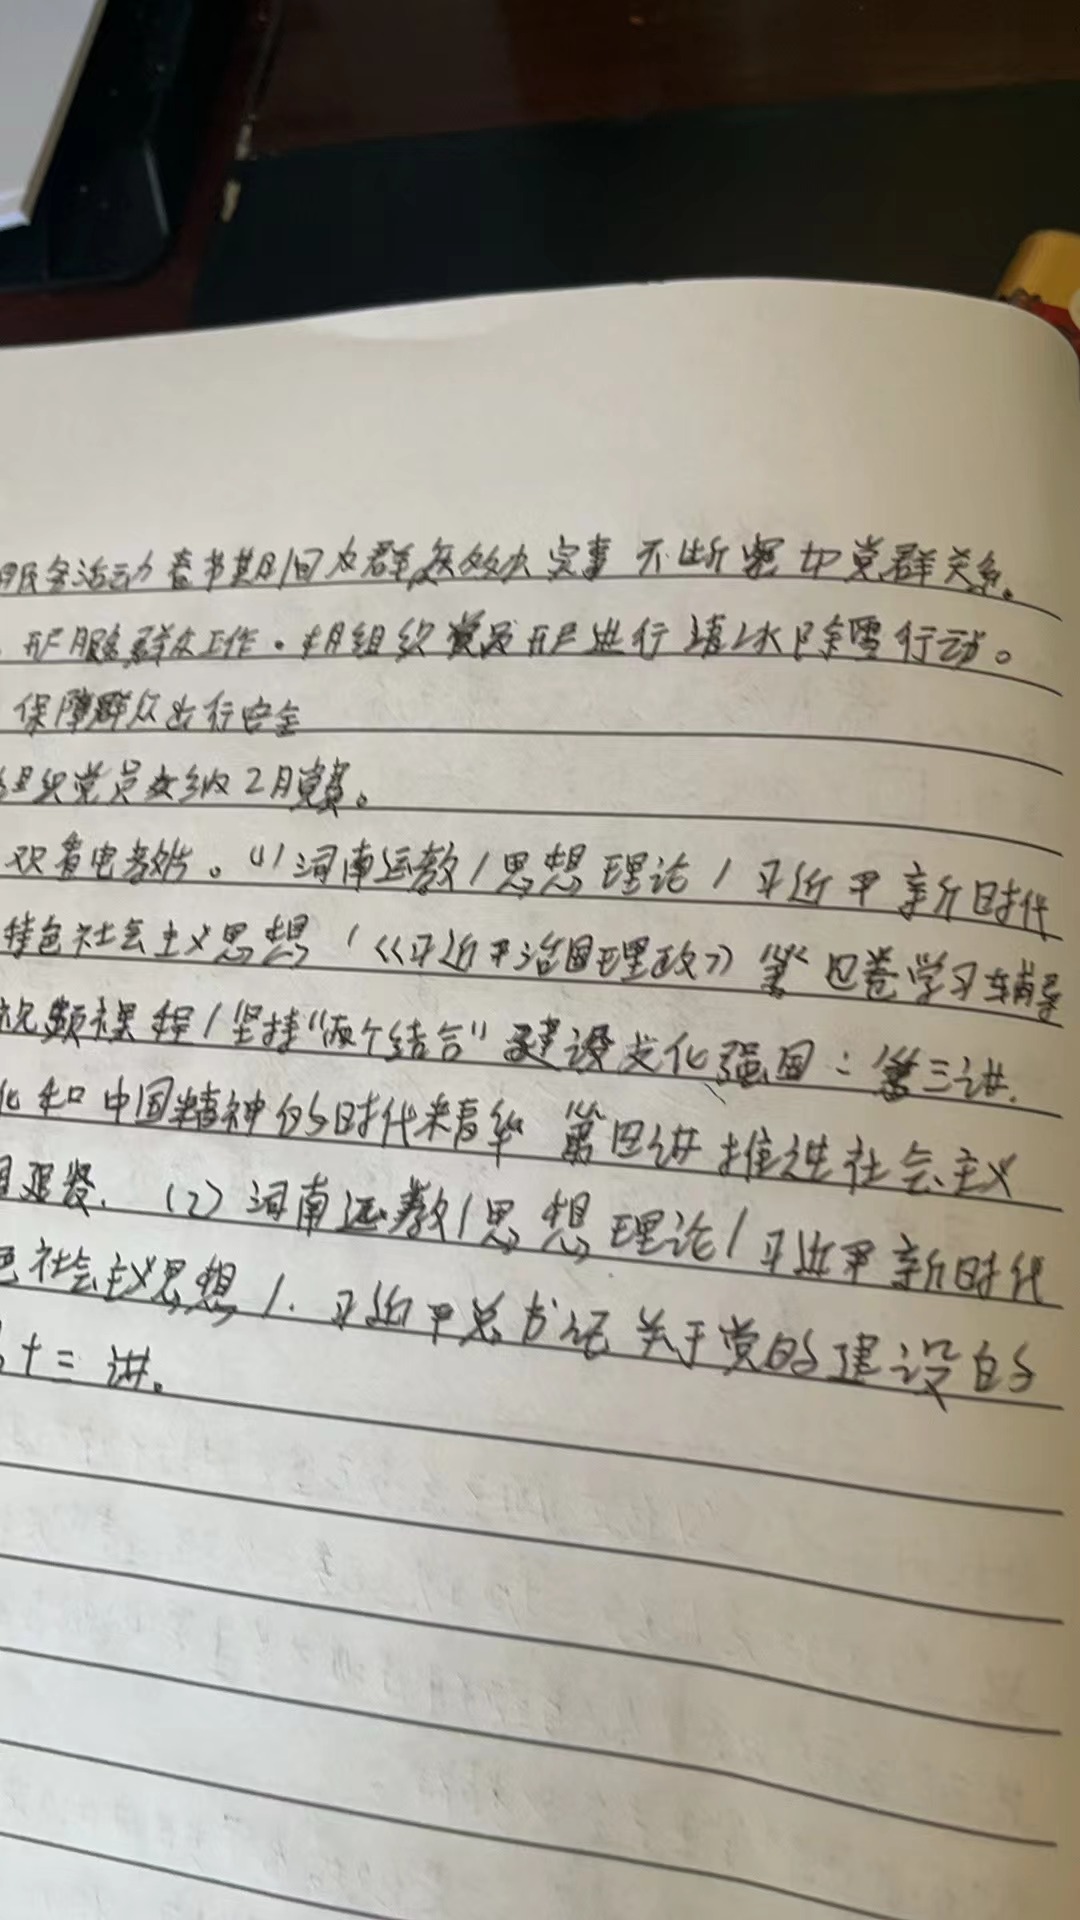 活动 春节期间为群众办实事 不断密切党群关系。
开展服务群众工作。本月组织党员开展进行清冰除雪行动。
保障群众出行安全
组织党员交纳2月党费。
观看电教片。(1)河南远教/思想理论/习近平新时代
特色社会主义思想/《习近平治国理政》第四卷学习辅导
视频课程/坚持“两个结合”建设文化强国:第三讲.
化和中国精神的时代精华 第四讲 推进社会主义
(2)河南远教/思想理论/习近平新时代
色社会主义思想/.习近平总书记关于党的建设的
十三讲。